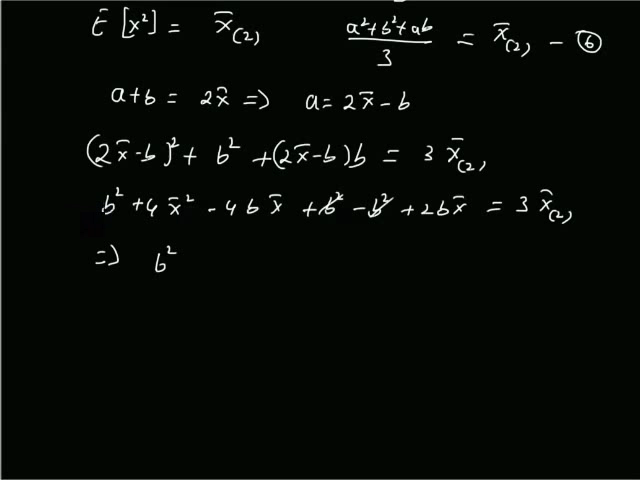 E[x²] = x̄₍₂₎   (a²+b²+ab)/3 = x̄₍₂₎ - ⑥
a+b = 2x̄ => a = 2x̄ - b
(2x̄-b)² + b² + (2x̄-b)b = 3 x̄₍₂₎
b² + 4x̄² - 4bx̄ + b̸² - b̸² + 2bx̄ = 3 x̄₍₂₎
=> b²